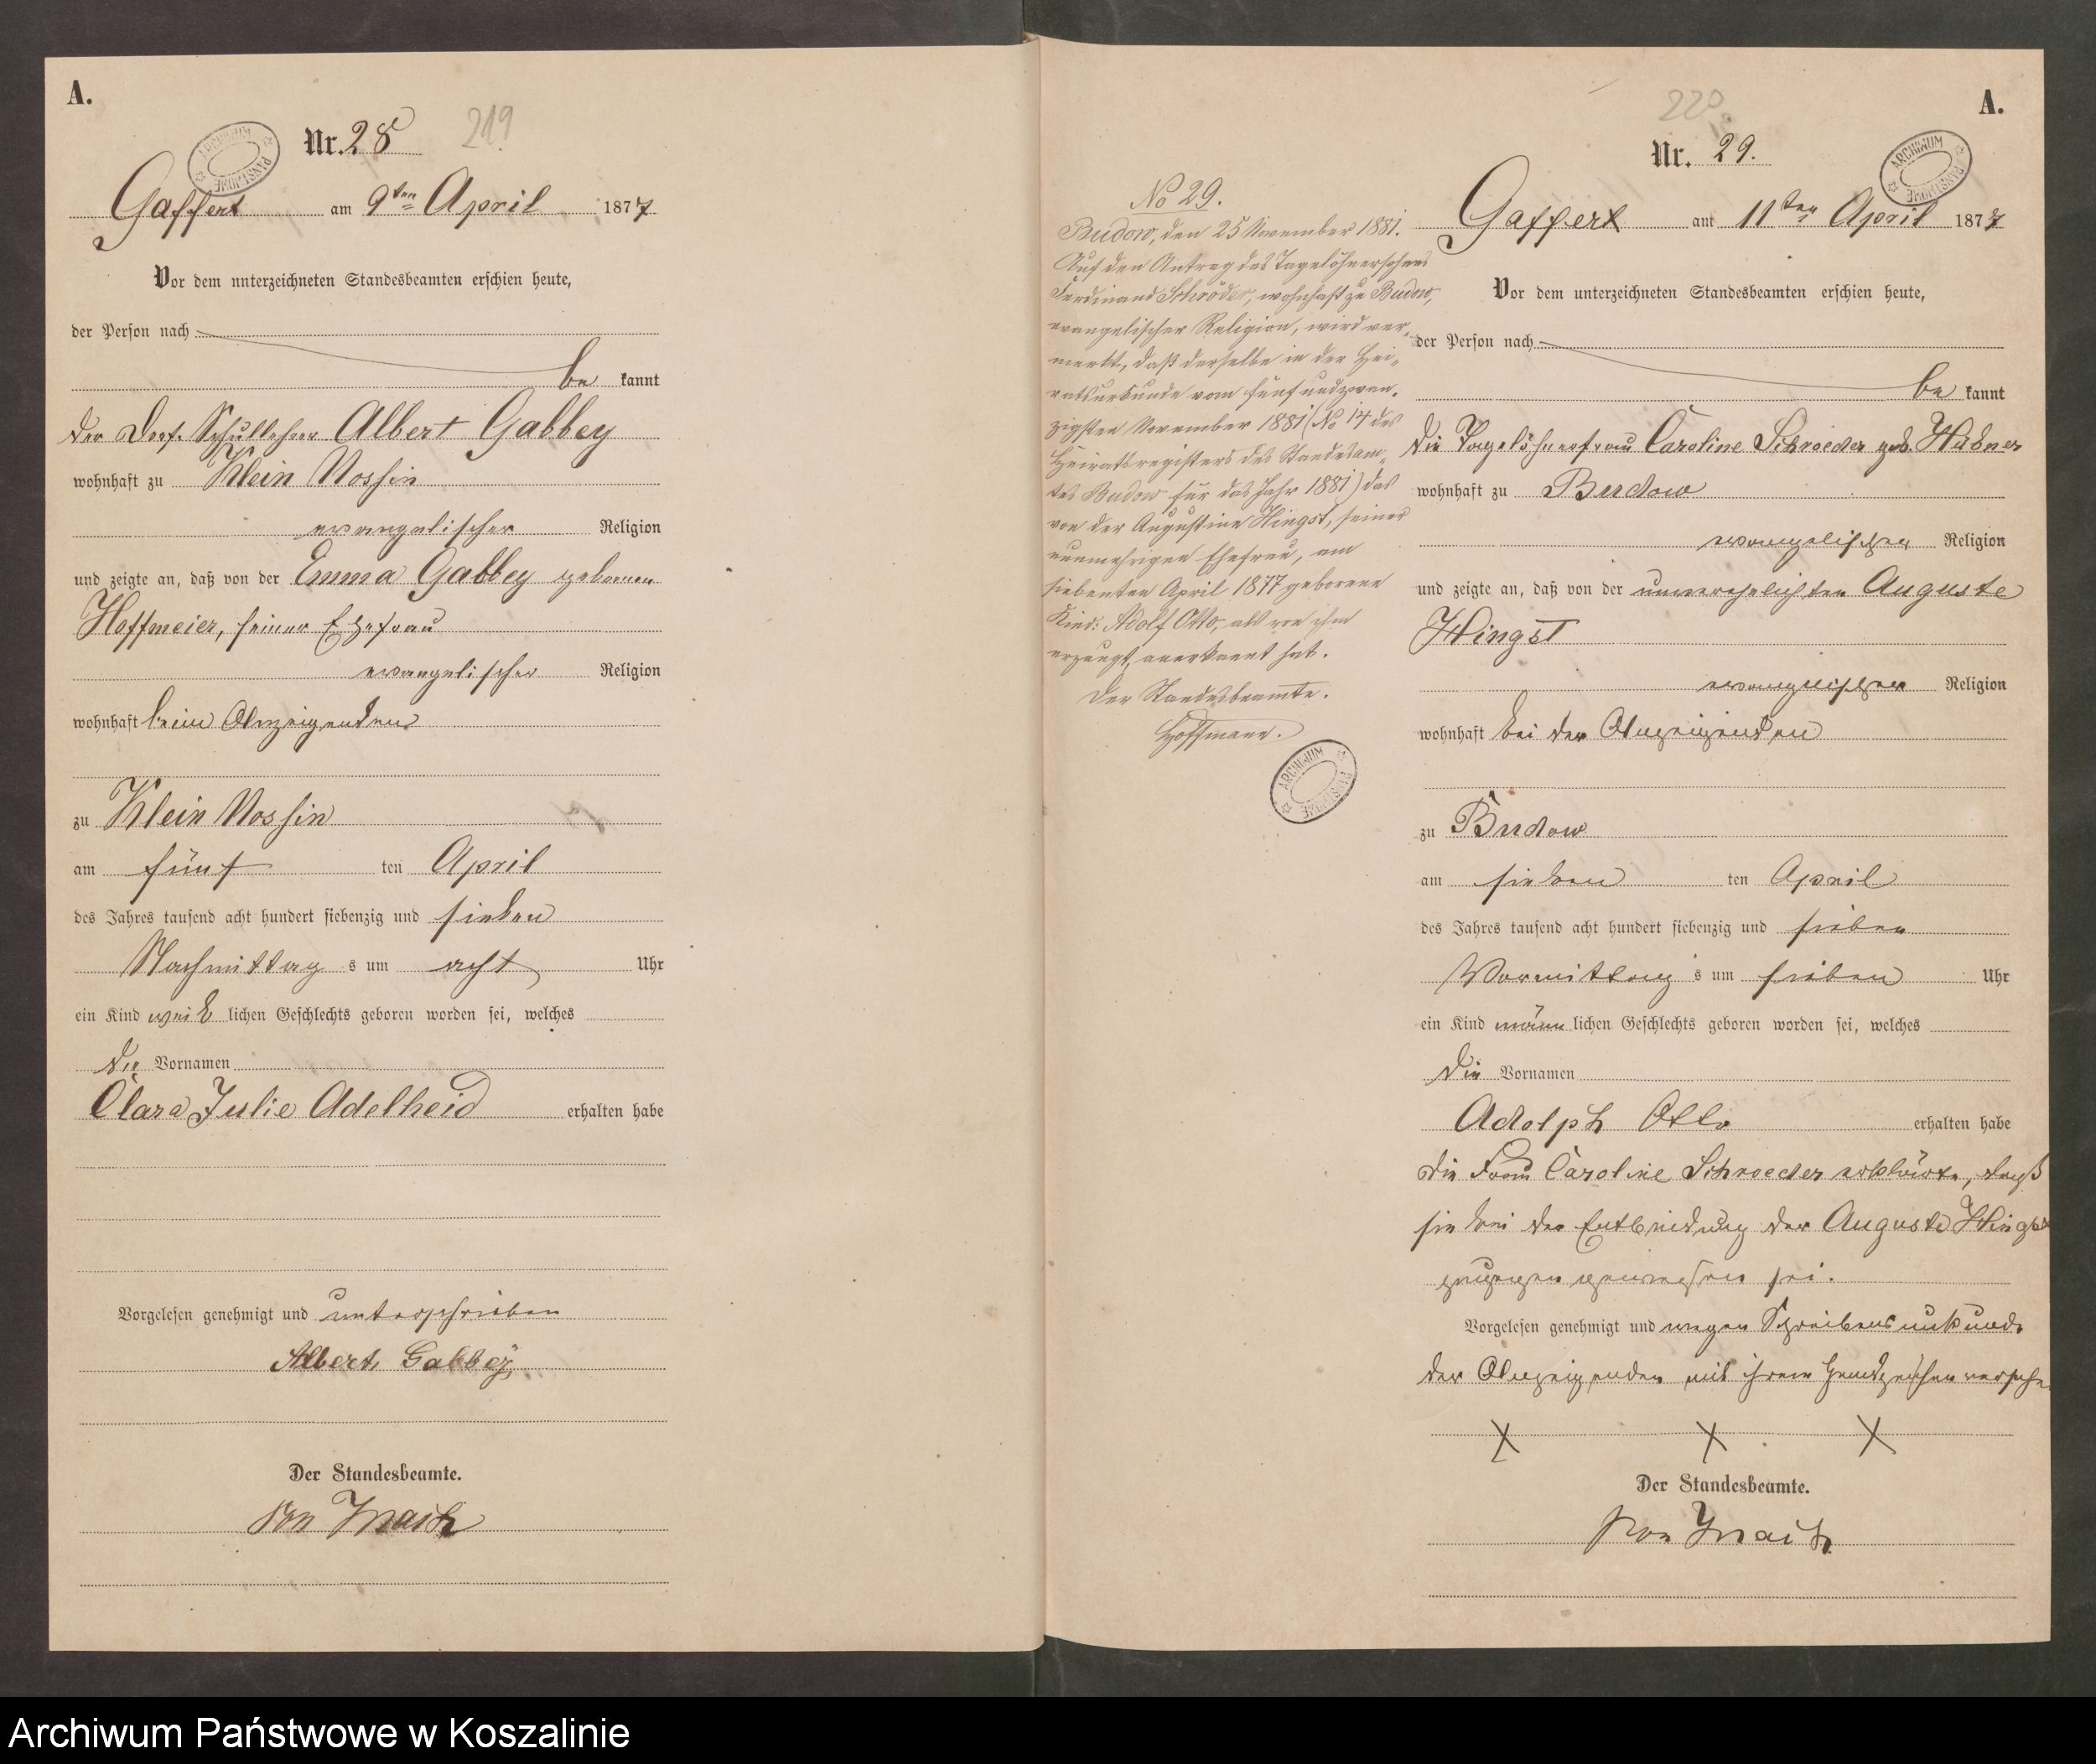 A.
Nr. 28 219
Gaffert am 9ten April 1877
Vor dem unterzeichneten Standesbeamten erschien heute,
der Person nach
be kannt
der Dorf-Schullehrer Albert Gabbey
wohnhaft zu Klein Nossin
evangelischer Religion
und zeigte an, daß von der Emma Gabbey geborenen
Hoffmeier, seiner Ehefrau
evangelischer Religion
wohnhaft beim Anzeigenden
zu Klein Nossin
am fünf ten April
des Jahres tausend acht hundert siebenzig und sieben
Nachmittag s um acht Uhr
ein Kind weib lichen Geschlechts geboren worden sei, welches
die Vornamen
Clara Julie Adelheid erhalten habe
Vorgelesen genehmigt und unterschrieben
Albert Gabbey
Der Standesbeamte.
von
No 29.
Budow, den 25 November 1881.
Auf den Antrag des Tagelöhnersohnes
Ferdinand Schröder, wohnhaft zu Budow,
evangelischer Religion, wird ver-
merkt, daß derselbe in der Hei-
ratsurkunde vom fünfundzwan-
zigsten November 1881 (No 14 des
Heiratsregisters des Standesam-
tes Budow für das Jahr 1881) das
von der Augustine Hingst, seiner
nunmehrigen Ehefrau, am
siebenten April 1877 geborene
Kind: Adolf Otto, als von ihm
erzeugt, anerkannt hat.
Der Standesbeamte.
Hoffmann.
ARCHIWUM PAŃSTWOWE
220
A.
Nr. 29.
ARCHIWUM PAŃSTWOWE
Gaffert am 11ten April 1877
Vor dem unterzeichneten Standesbeamten erschien heute,
der Person nach
be kannt
die Tagelöhnerfrau Caroline Schroeder geb. Hübner
wohnhaft zu Budow
evangelischer Religion
und zeigte an, daß von der unverehelichten Auguste
Hingst
evangelischer Religion
wohnhaft bei der Anzeigenden
zu Budow
am sieben ten April
des Jahres tausend acht hundert siebenzig und sieben
Vormittag s um sieben Uhr
ein Kind männ lichen Geschlechts geboren worden sei, welches
die Vornamen
Adolph Otto erhalten habe
die Frau Caroline Schroeder erklärte, daß
sie bei der Entbindung der Auguste Hingst
zugegen gewesen sei.
Vorgelesen genehmigt und wegen Schreibensunkunde
der Anzeigenden mit ihrem Handzeichen versehen
X X X
Der Standesbeamte.
von
Archiwum Państwowe w Koszalinie